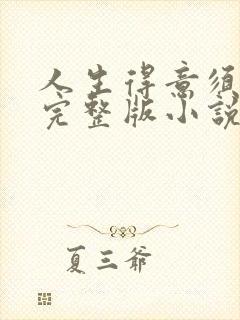 人生得意须
完整版小説
夏三爺